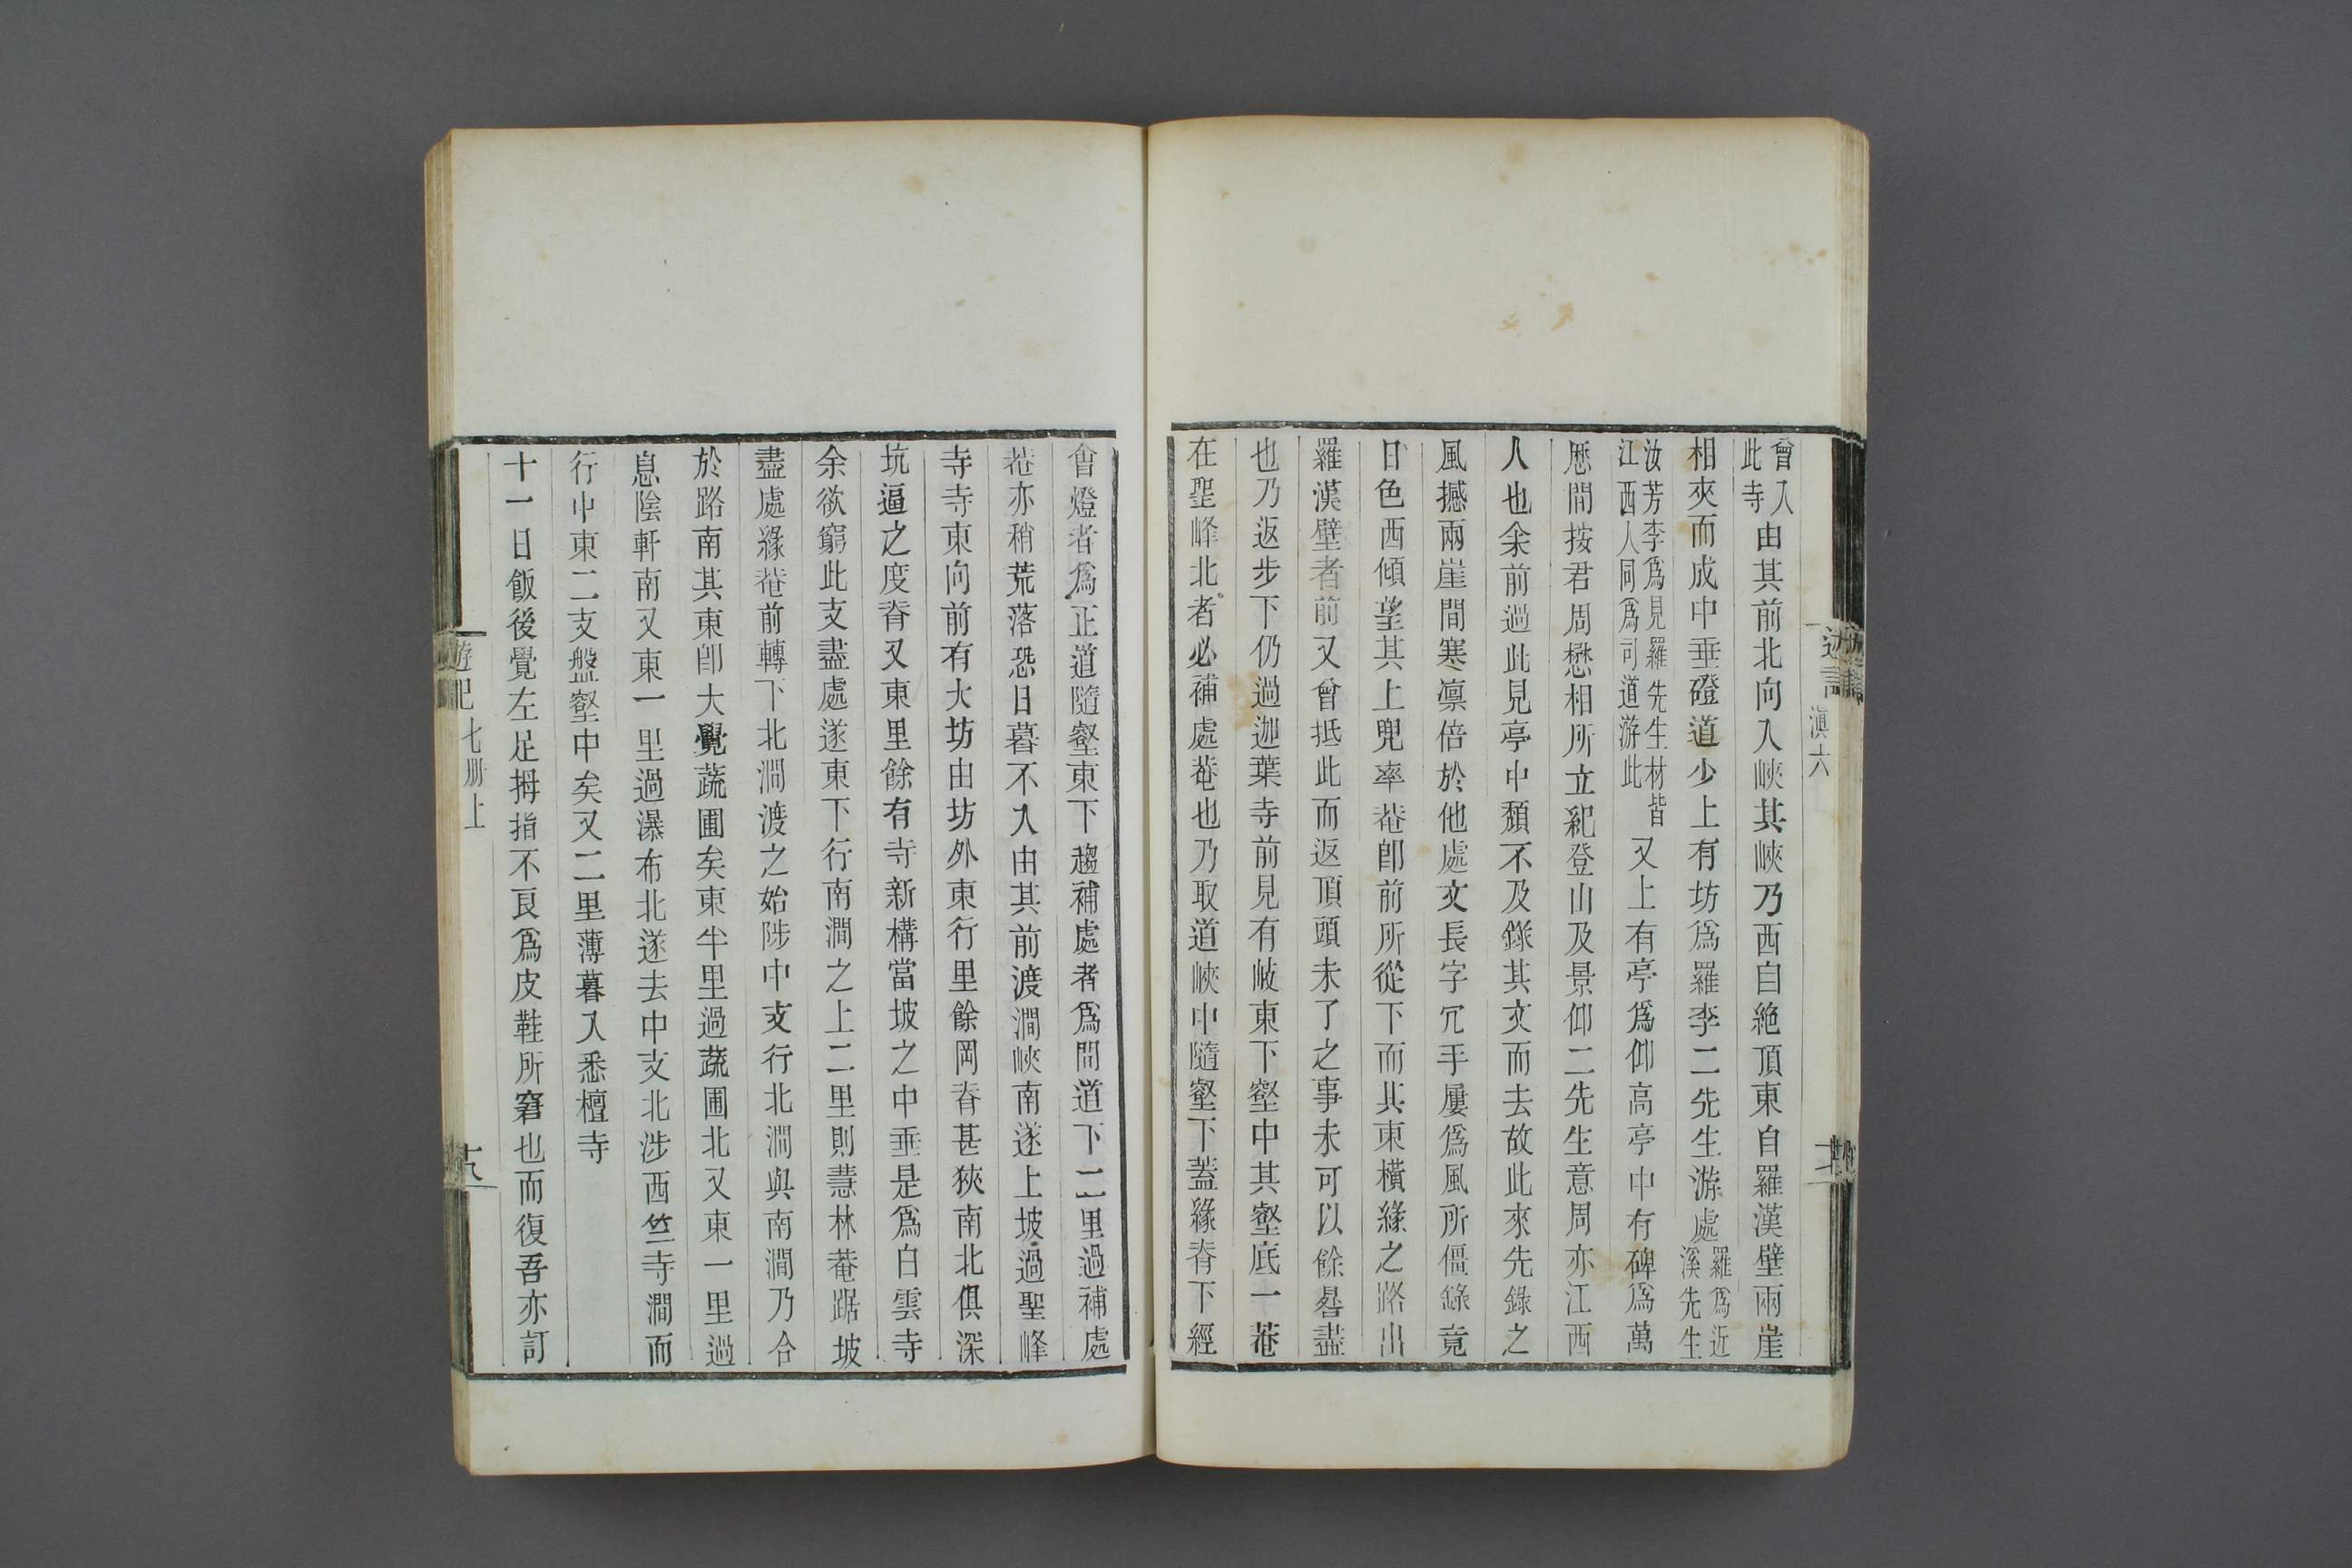 曾入此寺由其前北向入峽其峽乃西自絶頂東自羅漢壁兩崖
相夾而成中垂磴道少上有坊爲羅李二先生游處羅爲近溪先生
汝芳李爲見羅先生材皆江西人同爲司道游此又上有亭爲仰高亭中有碑爲萬
厯間按君周懋相所立紀登山及景仰二先生意周亦江西
人也余前過此見亭中頹不及錄其文而去故此來先錄之
風撼兩崖間寒凛倍於他處文長字冗手屢爲風所僵錄竟
日色西傾望其上兜率菴卽前所從下而其東橫緣之路出
羅漢壁者前又曾抵此而返頂頭未了之事未可以餘晷盡
也乃返步下仍過迦葉寺前見有岐東下壑中其壑底一菴
在聖峰北者必補處菴也乃取道峽中隨壑下蓋緣脊下經
會燈者爲正道隨壑東下趨補處者爲間道下二里過補處
菴亦稍荒落恐日暮不入由其前渡澗峽南遂上坡過聖峰
寺寺東向前有大坊由坊外東行里餘岡脊甚狹南北俱深
坑逼之度脊又東里餘有寺新構當坡之中垂是爲白雲寺
余欲窮此支盡處遂東下行南澗之上二里則慧林菴踞坡
盡處緣菴前轉下北澗渡之始陟中支行北澗與南澗乃合
於路南其東卽大覺蔬圃矣東半里過蔬圃北又東一里過
息陰軒南又東一里過瀑布北遂去中支北涉西竺寺澗而
行中東二支盤壑中矣又二里薄暮入悉檀寺
十一日飯後覺左足拇指不良爲皮鞋所窘也而復吾亦訂
遊記七册上
十八
滇六